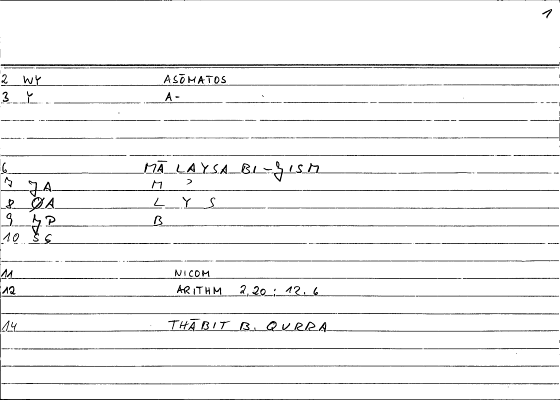 1
2 WY ASŌMATOS
3 Y A-
6 MĀ LAYSA BI-ǦISM
7 ǦA M ʾ
8 ØA L Y S
9 B
10 SG
11 NICOM
12 ARITHM 2,20 ; 12.6
14 THĀBIT B. QURRA